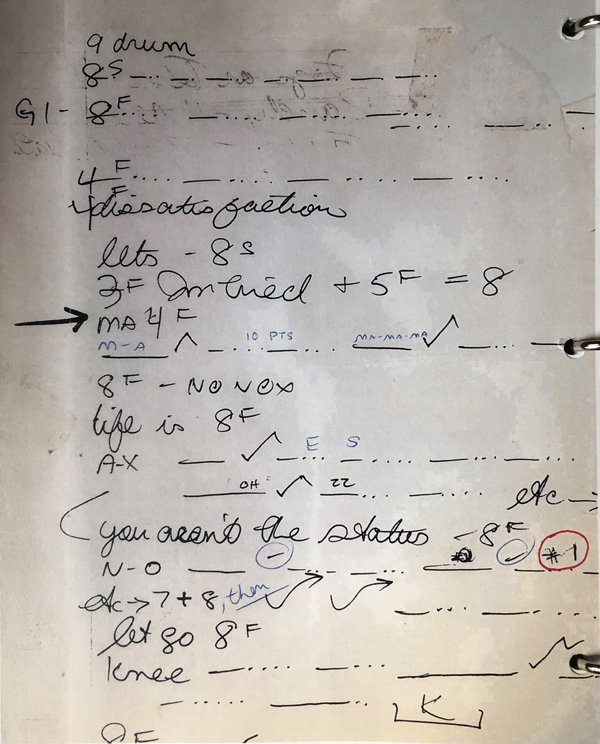 9 drum
8S
G1 - 8F
4F
F
dissatisfaction
lets - 8S
3F Im tried + 5F = 8
MA 4F
M-A 10 PTS MA-MA-MA
8F - NO NOX
life is 8F
E S
A-X
OH ZZ
etc
you aren't the status - 8F
N-O #1
etc → 7 + 8, then
let go 8F
Knee
K
8F